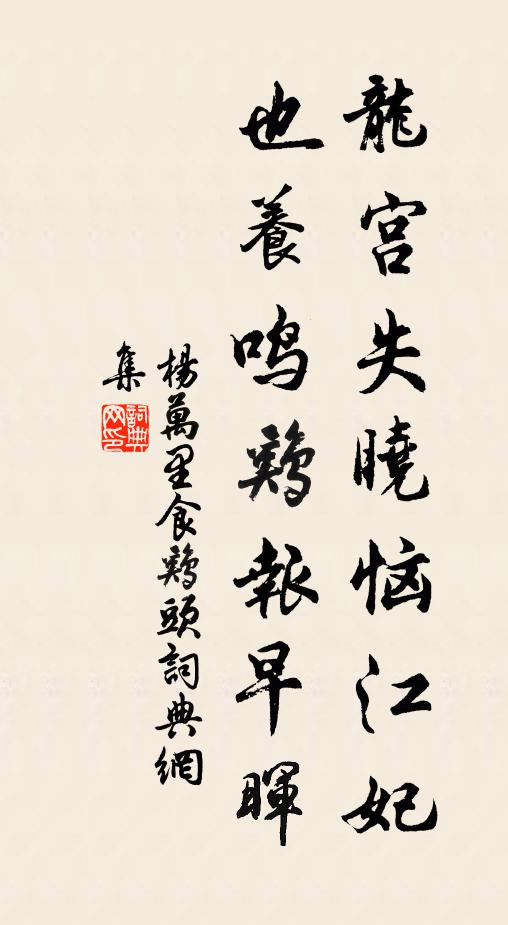 龍宫失曉惱江妃
也養鳴鷄報早暉
楊萬里食鷄頭詞典網
集
詞典
网印